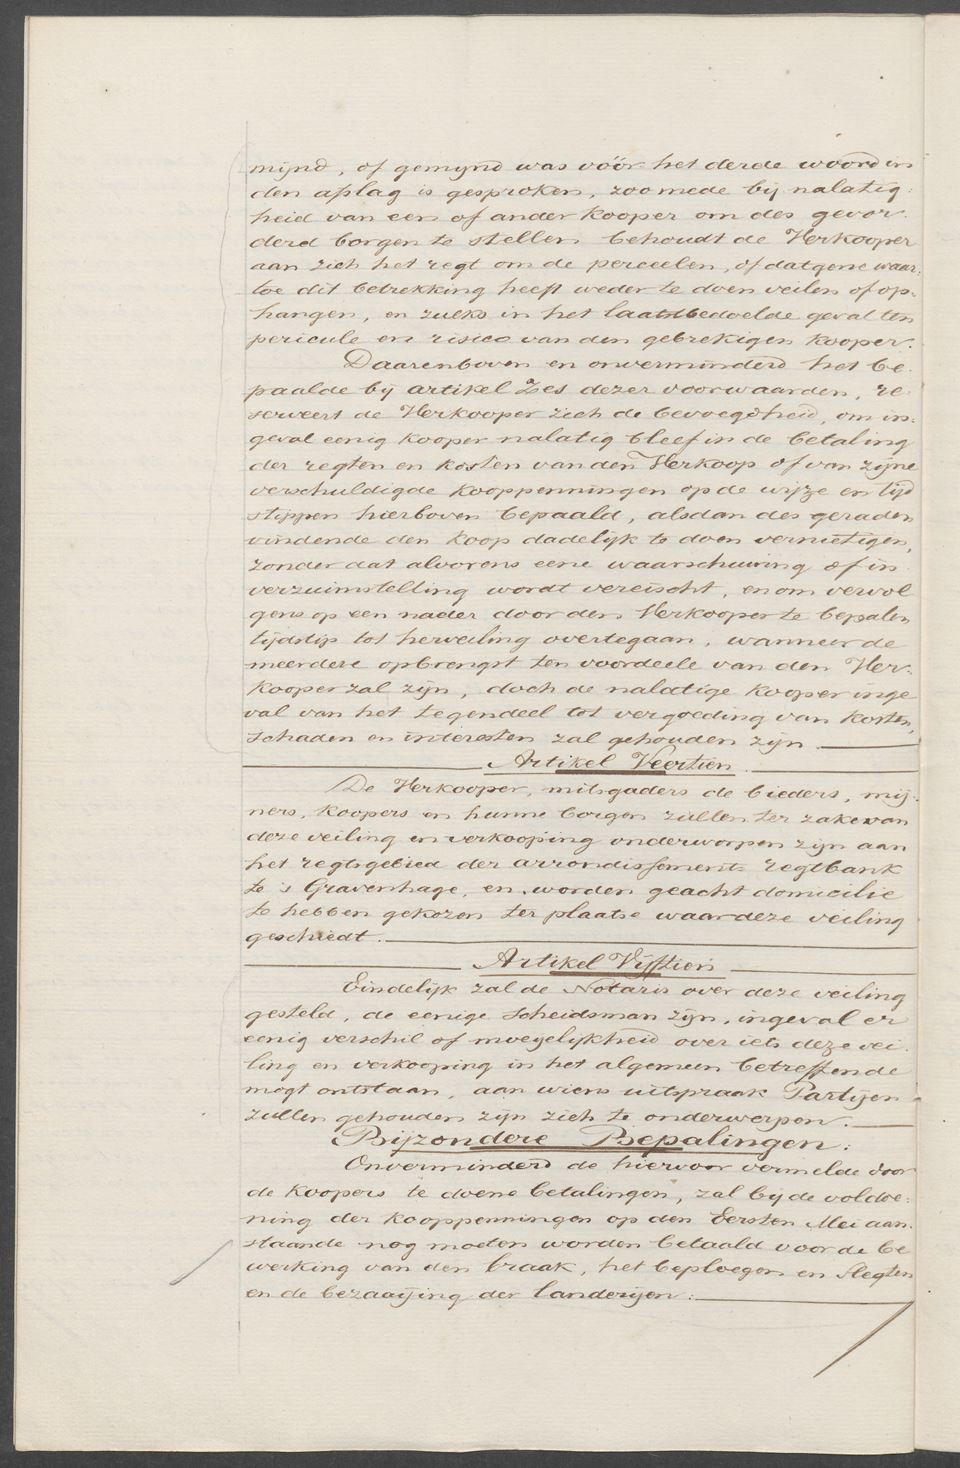 mijnd, of gemynd was vóór het derde woord in
den afslag is gesproken, zoomede bij nalatig:
heid van een of ander kooper om des gevor:
derd borgen te stellen behoudt de Verkooper
aan zich het regt om de perceelen, of datgene waar:
toe dit betrekking heeft weder te doen veilen of op:
hangen, en zulks in het laatstbedoelde geval ten
pericule en risico van den gebrekigen kooper.
Daarenboven en onverminderd het be:
paalde bij artikel Zes dezer voorwaarden, re:
serveert de Verkooper zich de bevoegdheid, om in:
geval eenig kooper nalatig bleef in de betaling
der regten en kosten van den Verkoop of van zijne
verschuldigde kooppenningen op de wijze en tijd
stippen hierboven bepaald, alsdan des geraden
vindende den koop dadelijk te doen vernietigen,
zonder dat alvorens eene waarschuwing of in
verzuimstelling wordt vereischt, en om vervol
gens op een nader door den Verkooper te bepalen
tijdstip tot herveiling overtegaan, wanneer de
meerdere opbrengst ten voordeele van den Ver:
kooper zal zijn, doch de nalatige kooper inge
val van het tegendeel tot vergoeding van kosten,
schaden en interesten zal gehouden zijn.
Artikel Veertien.
De Verkooper, mitsgaders de bieders, mij:
ners, koopers en hunne borgen zullen ter zake van
deze veiling en verkooping onderworpen zijn aan
het regtsgebied der arrondissements regtbank
te 's Gravenhage, en worden geacht domicilie
te hebben gekozen ter plaatse waar deze veiling
geschiedt.
Artikel Vijftien
Eindelijk zal de Notaris over deze veiling
gesteld, de eenige scheidsman zijn, ingeval er
eenig verschil of moeyelijkheid over iets deze vei:
ling en verkooping in het algemeen betreffende
mogt ontstaan, aan wiens uitspraak Partijen
zullen gehouden zijn zich te onderwerpen.
Bijzondere Bepalingen:
Onverminderd de hiervoor vermelde door
de koopers te doene betalingen, zal bij de voldoe:
ning der kooppenningen op den Eersten Mei aan:
staande nog moeten worden betaald voor de be
werking van den braak, het beploegen en slegten
en de bezaaijing der landerijen: